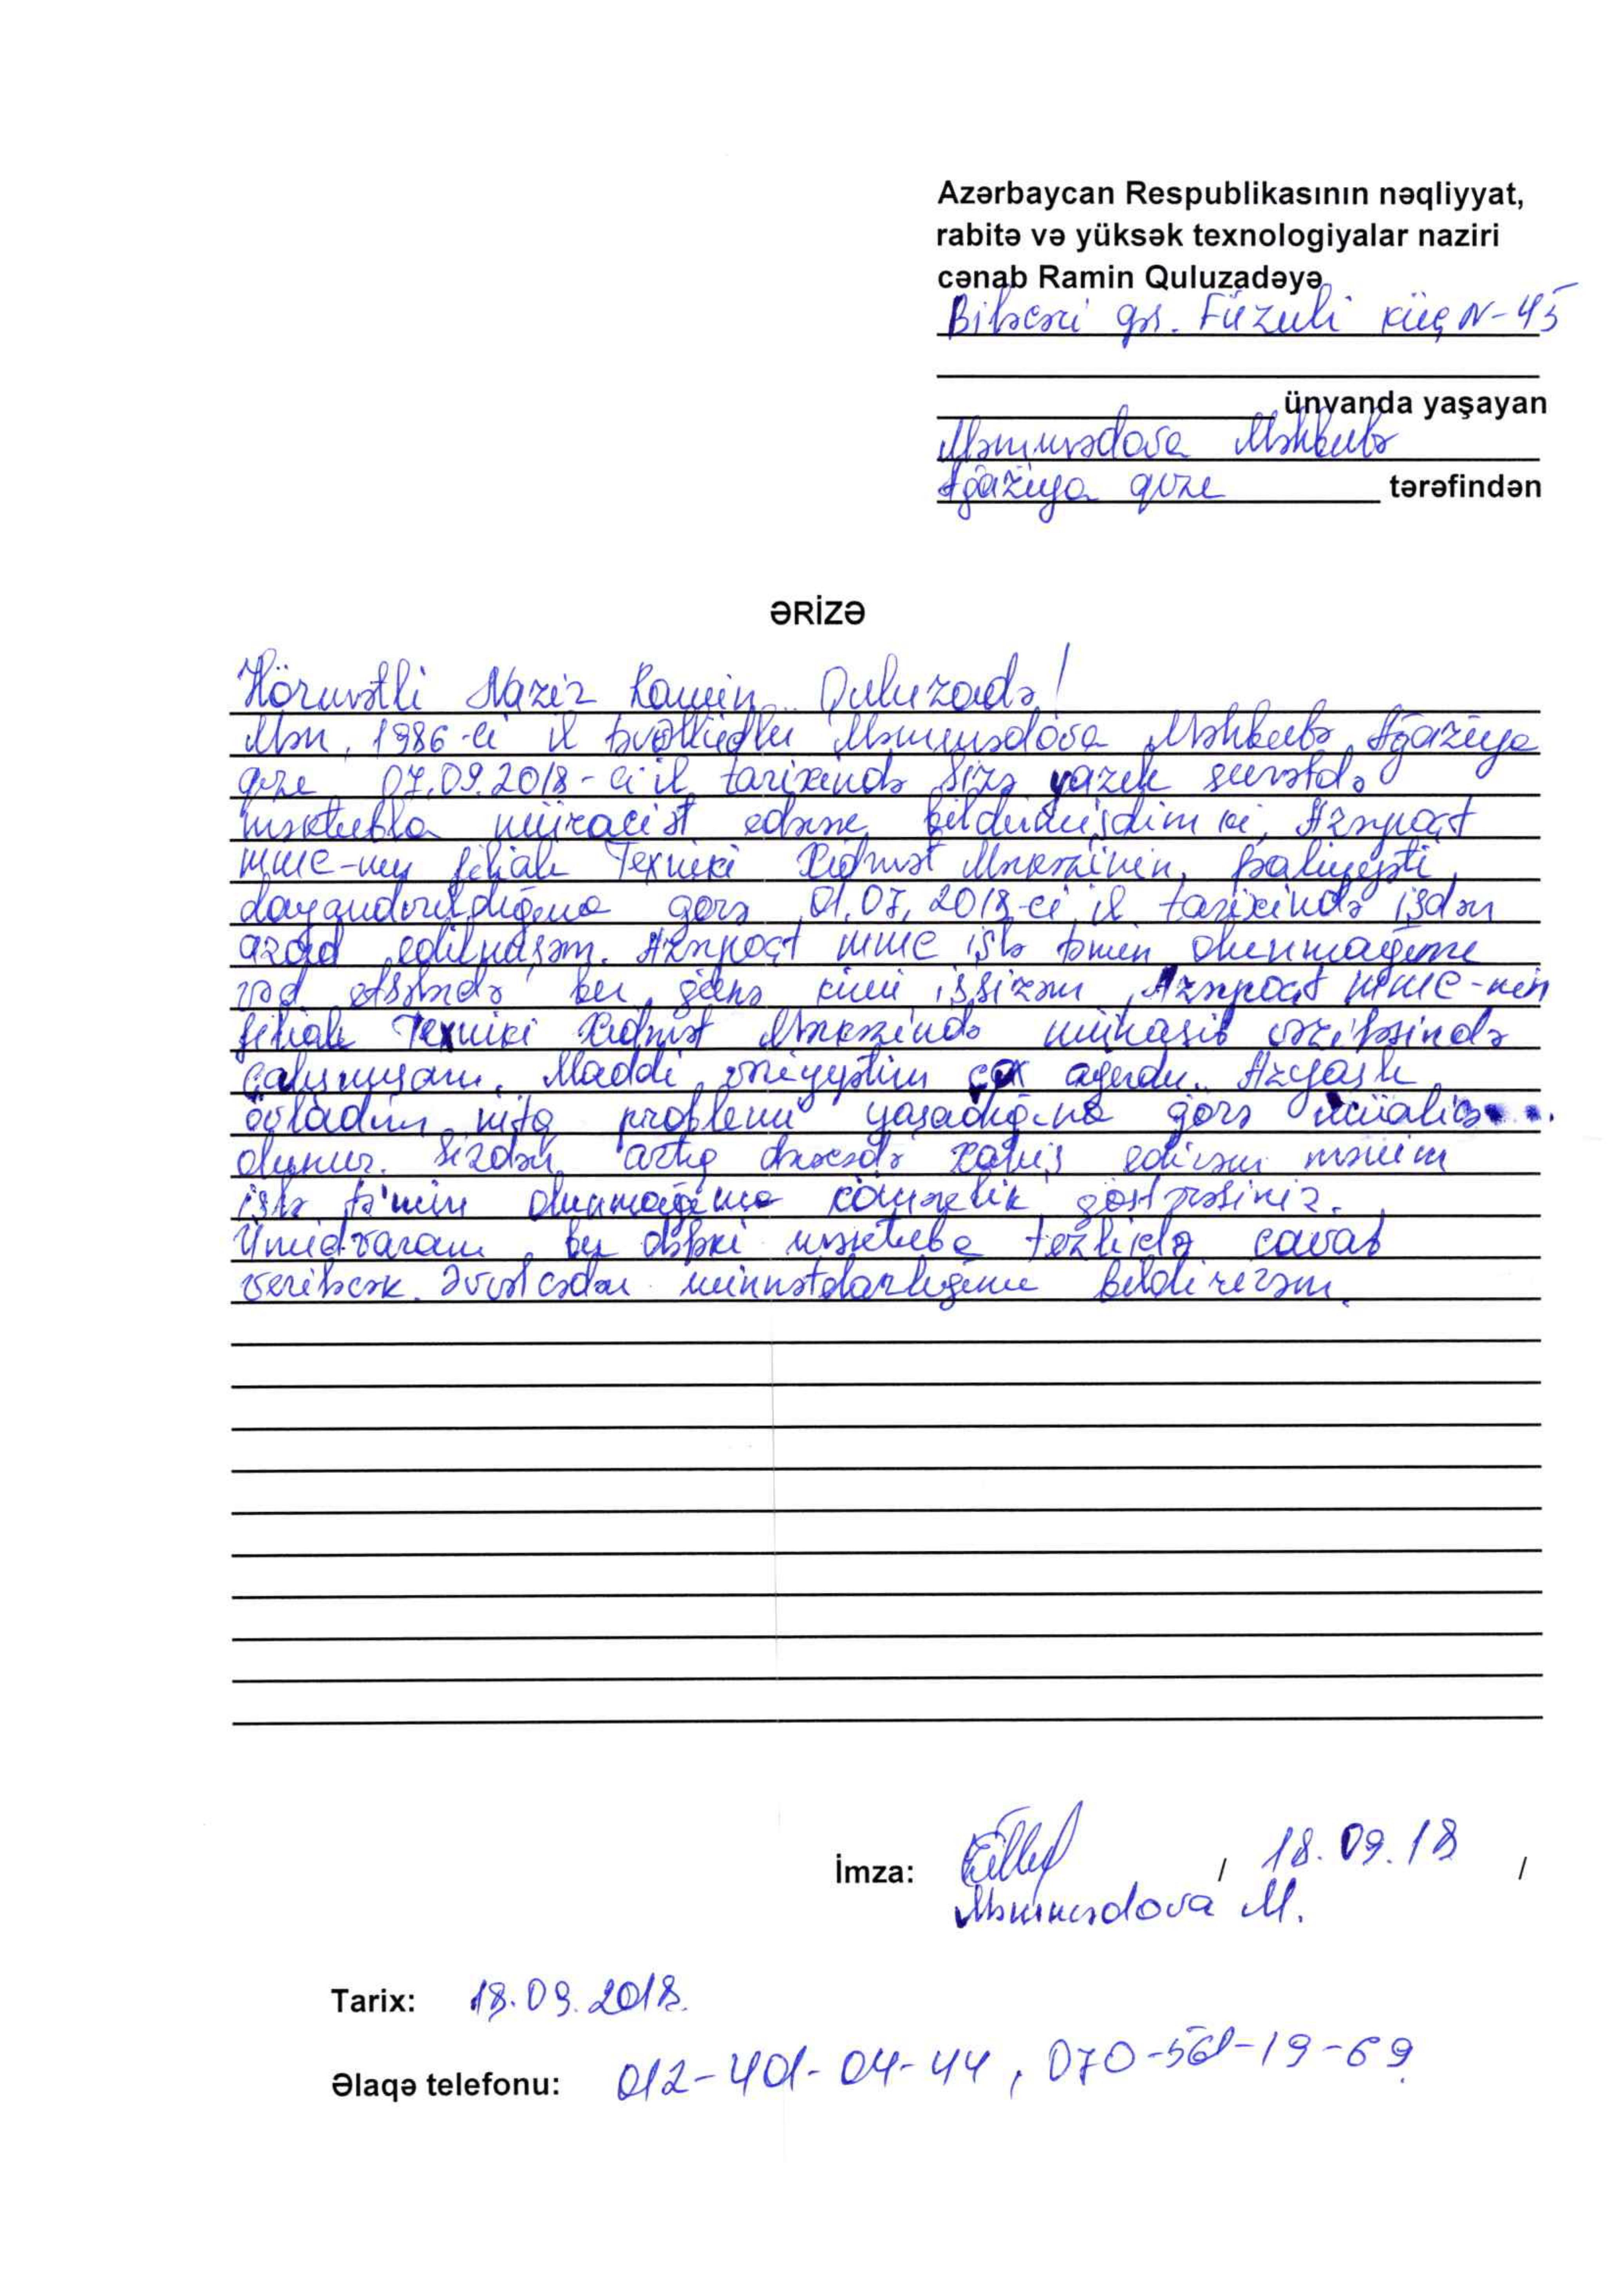 Azərbaycan Respublikasının nəqliyyat,
rabitə və yüksək texnologiyalar naziri
cənab Ramin Quluzadəyə
Biləcəri qəs. Füzuli küç N-45
ünvanda yaşayan
Məmmədova Məhbubə
Ağaziya qızı tərəfindən
ƏRİZƏ
Hörmətli Nazir Ramin Quluzadə!
Mən, 1986-cı il təvəllüdlü Məmmədova Məhbubə Ağaziya
qızı 07.09.2018-ci il tarixində Sizə yazılı surətdə
məktubla müraciət edərək bildirmişdim ki, Azərpoçt
MMC-nin filialı Texniki Xidmət Mərkəzinin fəaliyyəti
dayandırıldığına görə 01.07.2018-ci il tarixində işdən
azad edilmişəm. Azərpoçt MMC işlə təmin olunmağımı
rəd etsələrdə bu günə kimi işsizəm. Azərpoçt MMC-nin
filialı Texniki Xidmət Mərkəzində mühasib vəzifəsində
çalışmışam. Maddi vəziyyətim çox ağırdı. Azyaşlı
övladım nitq problemi yaşadığına görə müalicə
olunur. Sizdən artıq dərəcədə xahiş edirəm mənim
işlə tə'min olunmağıma köməklik göstərəsiniz.
Ümidvaram bu dəfəki məktuba tezliklə cavab
veriləcək. Əvvəlcədən minnətdarlığımı bildirirəm.
İmza: / 18.09.18 /
Məmmədova M.
Tarix: 18.09.2018.
Əlaqə telefonu: 012-401-04-44, 070-561-19-69.